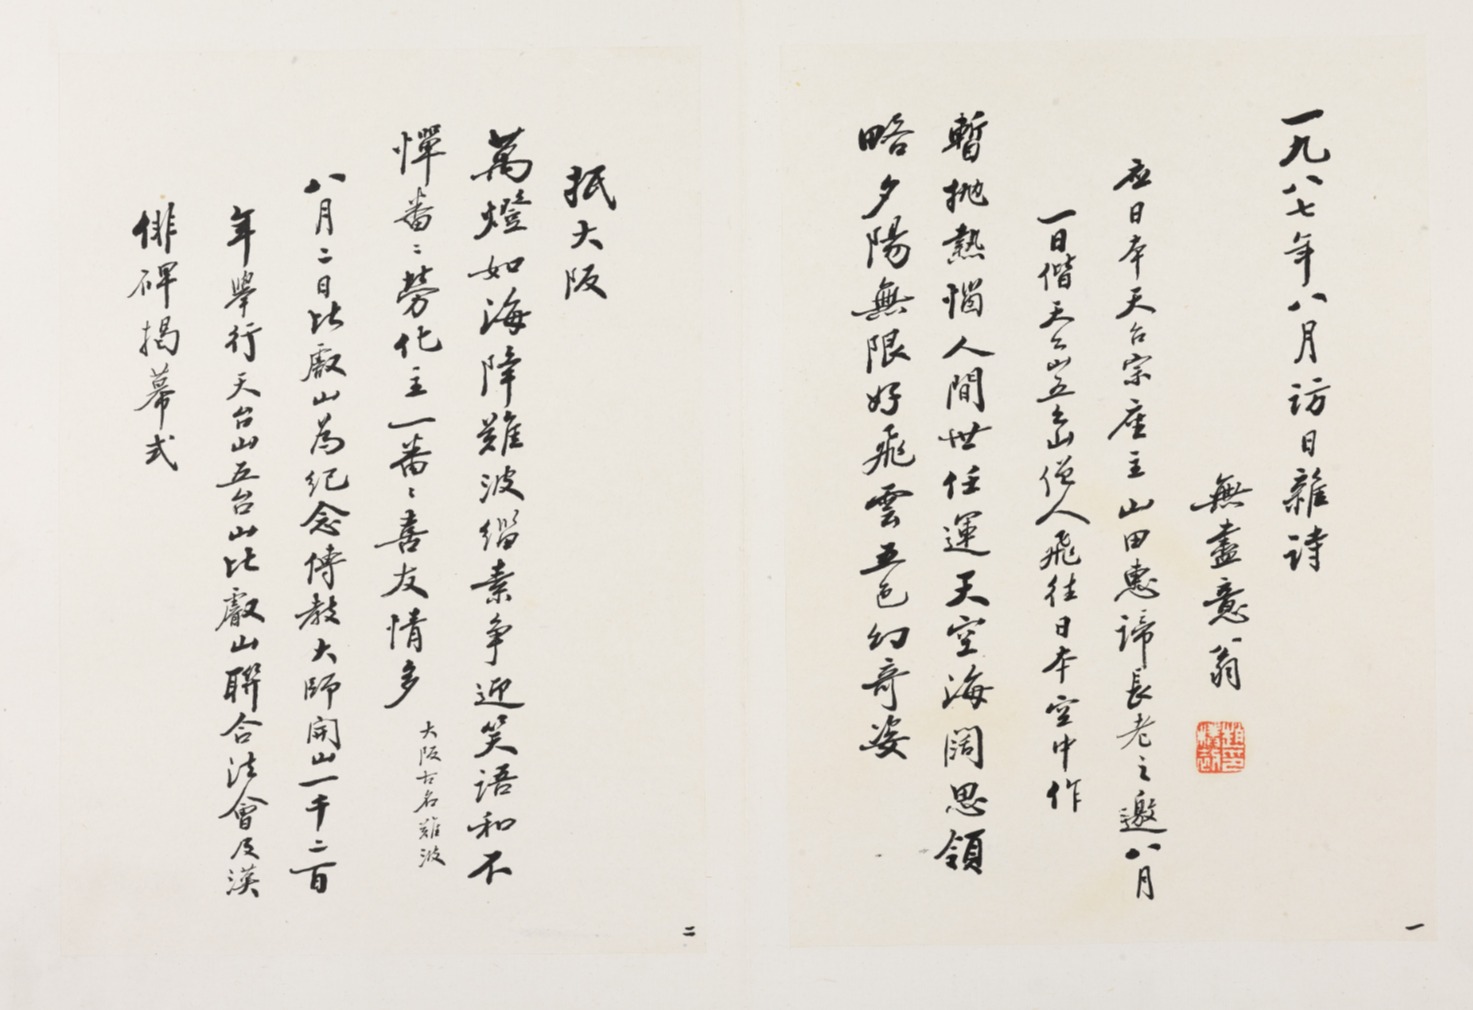 一九八七年八月访日雜诗
無盡意翁
趙樸初印
应日本天台宗座主山田惠諦長老之邀八月
一日偕天台山五台山僧人飛往日本空中作
暫抛熱惱人間世任運天空海闊思領
略夕陽無限好飛雲五色幻奇姿
一
抵大阪
萬燈如海降難波緇素争迎笑語和不
憚番〻勞化主一番〻喜友情多
大阪古名難波
八月二日比叡山為纪念傳教大師開山一千二百
年舉行天台山五台山比叡山聯合法會及漢
俳碑揭幕式
二